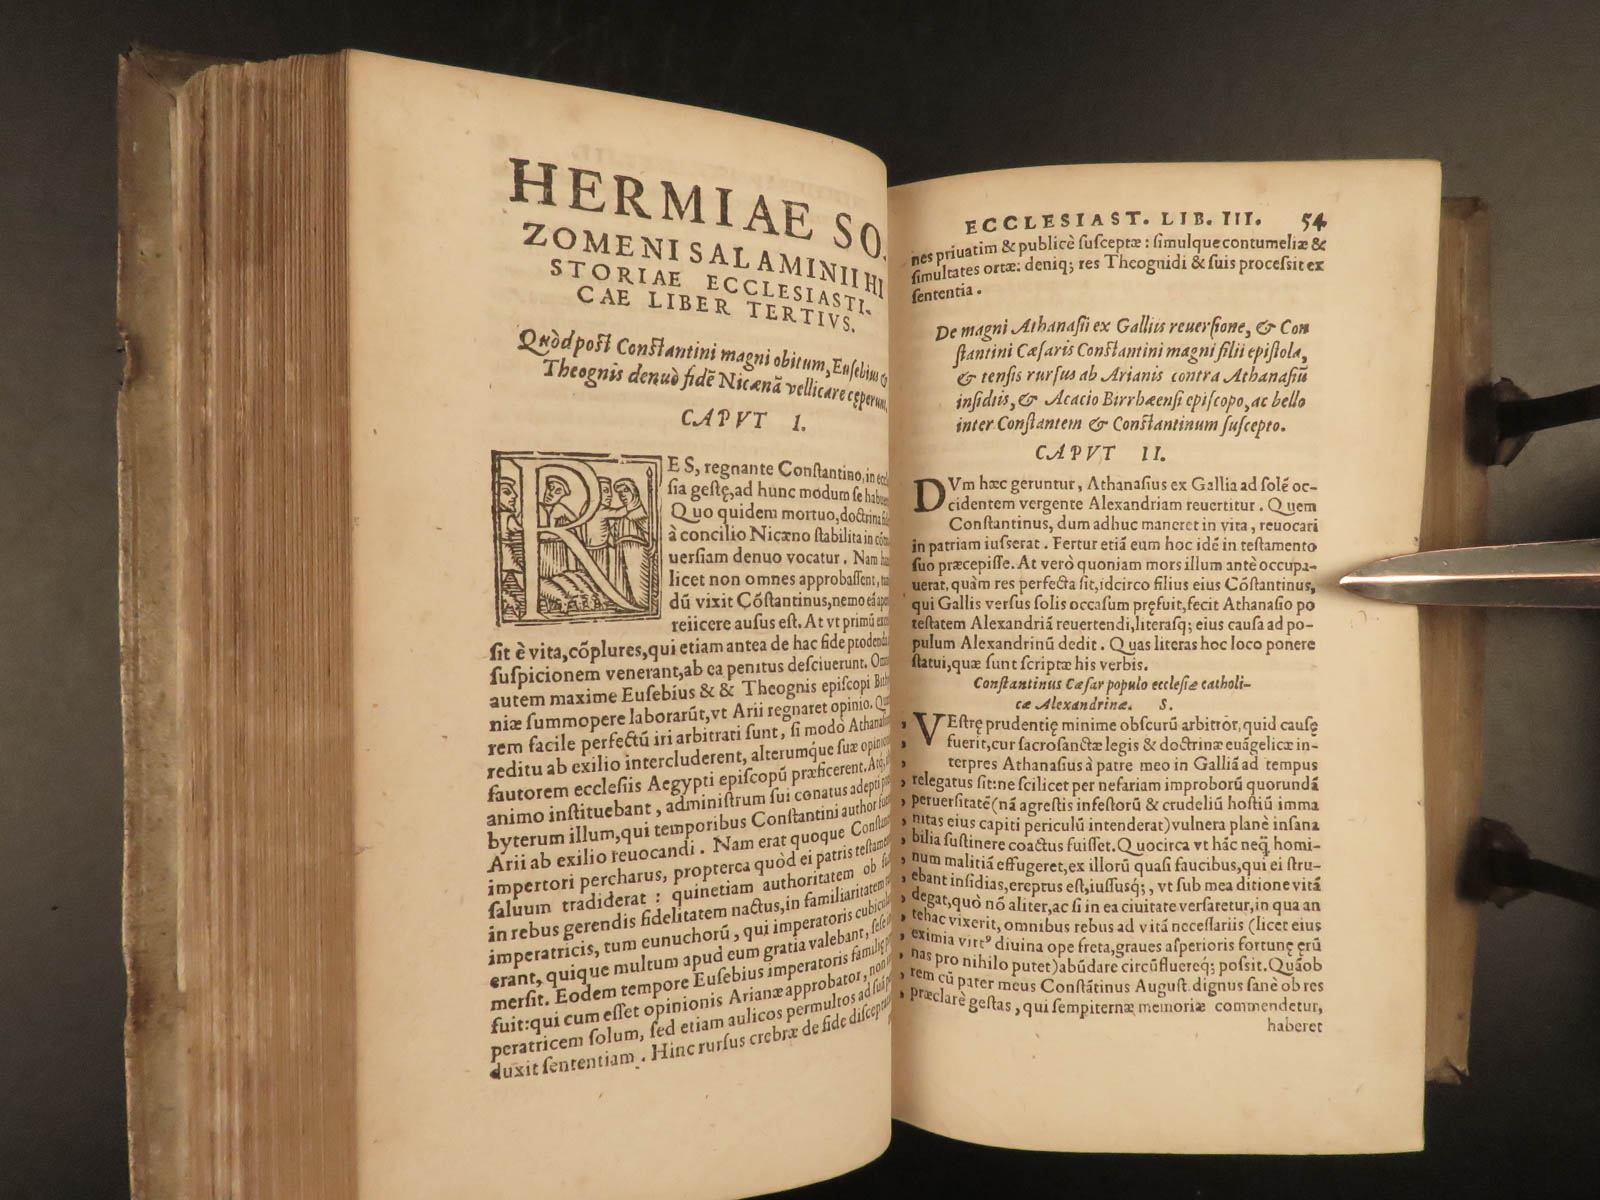 HERMIAE SO.
ZOMENI SALAMINII HI
STORIAE ECCLESIASTI-
CAE LIBER TERTIVS.
Quòd post Constantini magni obitum, Eusebius &
Theognis denuò fidẽ Nicænã vellicare cęperunt,
CAPVT I.
RES, regnante Constantino, in eccle
sia gestę, ad hunc modum se habue
Quo quidem mortuo, doctrina fidei
à concilio Nicæno stabilita in cõtro
uersiam denuo vocatur. Nam hanc
licet non omnes approbassent,
dũ vixit Cõstantinus, nemo eã aper
reiicere ausus est. At vt primũ
sit è vita, cõplures, qui etiam antea de hac fide prodenda
suspicionem venerant, ab ea penitus desciuerunt.
autem maxime Eusebius & & Theognis episcopi Bithy
niæ summopere laborarũt, vt Arii regnaret opinio.
rem facile perfectũ iri arbitrati sunt, si modò Athanasii
reditu ab exilio intercluderent, alterumque suæ opinionis
fautorem ecclesiis Aegypti episcopũ præficerent. Atq́;
animo instituebant, administrum sui conatus adepti
byterum illum, qui temporibus Constantini author
Arii ab exilio reuocandi. Nam erat quoque
impertori percharus, propterea quòd ei patris
saluum tradiderat: quinetiam authoritatem ob
in rebus gerendis fidelitatem nactus, in familiaritatem
imperatricis, tum eunuchorũ, qui imperatoris
erant, quique multum apud eum gratia valebant, sese
mersit. Eodem tempore Eusebius imperatoris familię
fuit: qui cum esset opinionis Arianæ approbator, non
peratricem solum, sed etiam aulicos permultos ad suã
duxit sententiam. Hinc rursus crebræ de fide disceptatio
ECCLESIAST. LIB. III. 54
nes priuatim & publicè susceptæ: simulque contumeliæ &
simultates ortæ: deniq; res Theognidi & suis processit ex
sententia.
De magni Athanasii ex Galliis reuersione, & Con
stantini Cæsaris Constantini magni filii epistola,
& tensis rursus ab Arianis contra Athanasiũ
insidiis, & Acacio Birrhæensi episcopo, ac bello
inter Constantem & Constantinum suscepto.
CAPVT II.
DVm hæc geruntur, Athanasius ex Gallia ad solẽ oc-
cidentem vergente Alexandriam reuertitur. Quem
Constantinus, dum adhuc maneret in vita, reuocari
in patriam iusserat. Fertur etiã eum hoc idẽ in testamento
suo præcepisse. At verò quoniam mors illum antè occupa-
uerat, quàm res perfecta sit, idcirco filius eius Cõstantinus,
qui Gallis versus solis occasum pręfuit, fecit Athanasio po
testatem Alexandriã reuertendi, literasq; eius causa ad po-
pulum Alexandrinũ dedit. Quas literas hoc loco ponere
statui, quæ sunt scriptæ his verbis.
Constantinus Cæsar populo ecclesiæ catholi-
cæ Alexandrinæ. S.
VEstrę prudentię minime obscurũ arbitror, quid causę
fuerit, cur sacrosanctæ legis & doctrinæ euãgelicæ in-
terpres Athanasius à patre meo in Galliã ad tempus
relegatus sit: ne scilicet per nefariam improborũ quorundã
peruersitatẽ (nã agrestis infestorũ & crudeliũ hostiũ imma
nitas eius capiti periculũ intenderat) vulnera planè insana
bilia sustinere coactus fuisset. Quocirca vt hãc neq̃ homi-
num malitiã effugeret, ex illorũ quasi faucibus, qui ei stru-
ebant insidias, ereptus est, iussusq;, vt sub mea ditione vitã
degat, quò nõ aliter, ac si in ea ciuitate versaretur, in qua an
tehac vixerit, omnibus rebus ad vitã necessariis (licet eius
eximia virtꝰ diuina ope freta, graues asperioris fortunę ęrũ
nas pro nihilo putet) abũdare circũfluereq; possit. Quãob
rem cũ pater meus Constãtinus August. dignus sanè ob res
præclarè gestas, qui sempiternæ memoriæ commendetur,
haberet